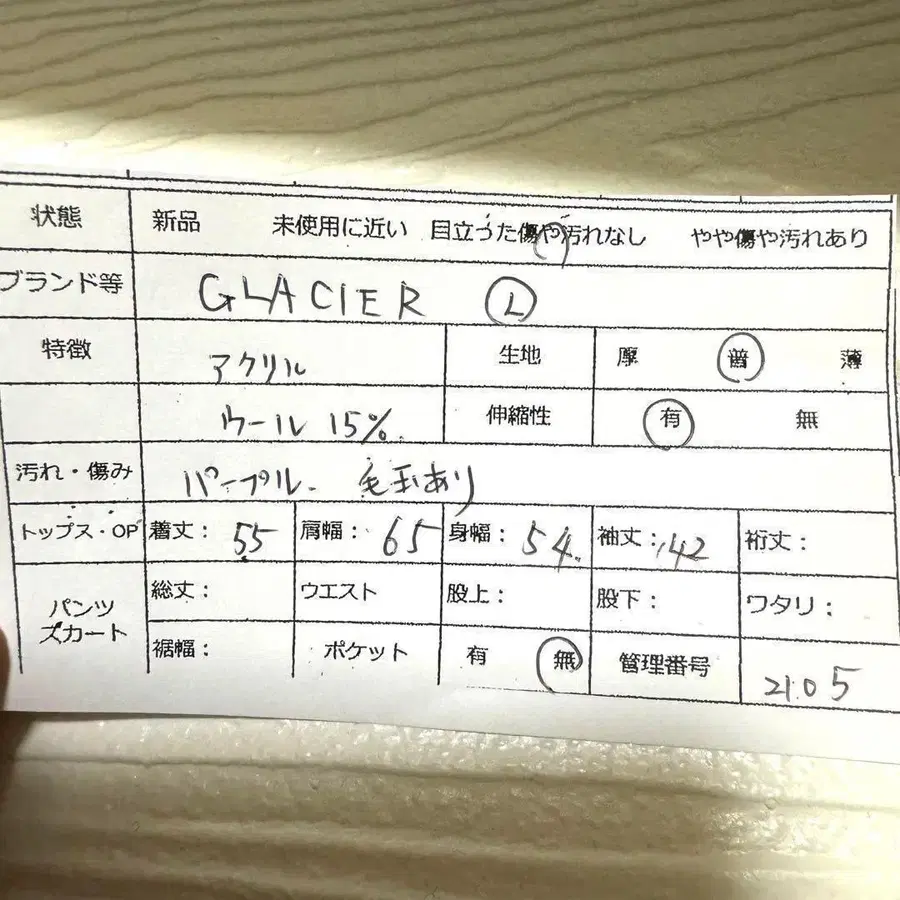 状態 新品 未使用に近い 目立った傷や汚れなし やや傷や汚れあり
ブランド等 GLACIER L
特徴 アクリル 生地 厚 普 薄
ウール 15% 伸縮性 有 無
汚れ・傷み パープル. 毛玉あり
トップス・OP 着丈: 55 肩幅: 65 身幅: 54. 袖丈: 42 裄丈:
パンツ スカート 総丈: ウエスト 股上: 股下: ワタリ:
裾幅: ポケット 有 無 管理番号 2105